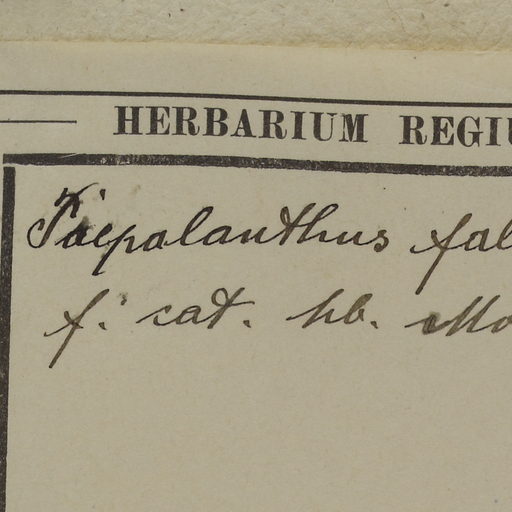 HERBARIUM REGIU
Paepalanthus fal
f. cat. hb. Mo